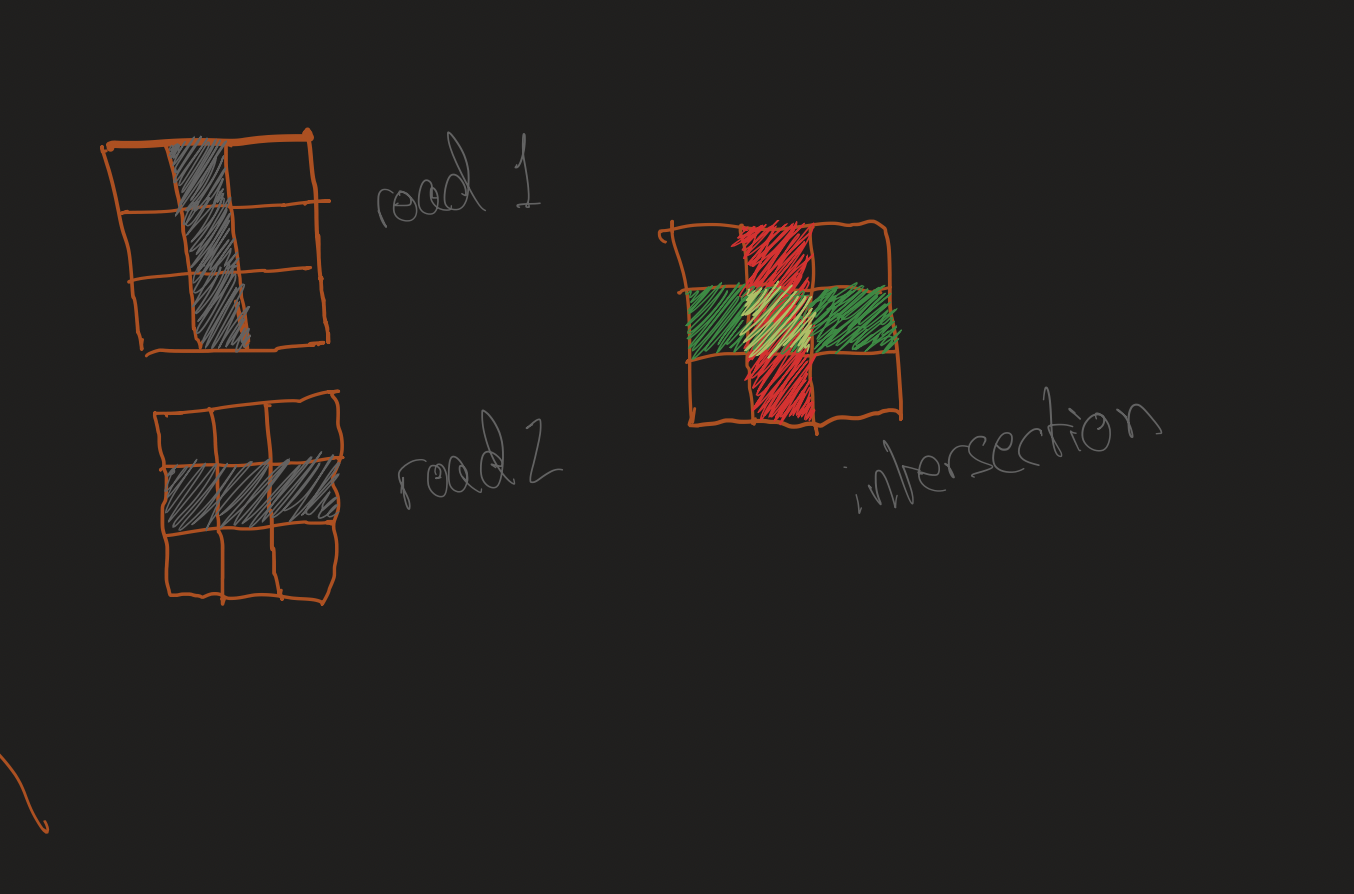 road 1
road 2
intersection